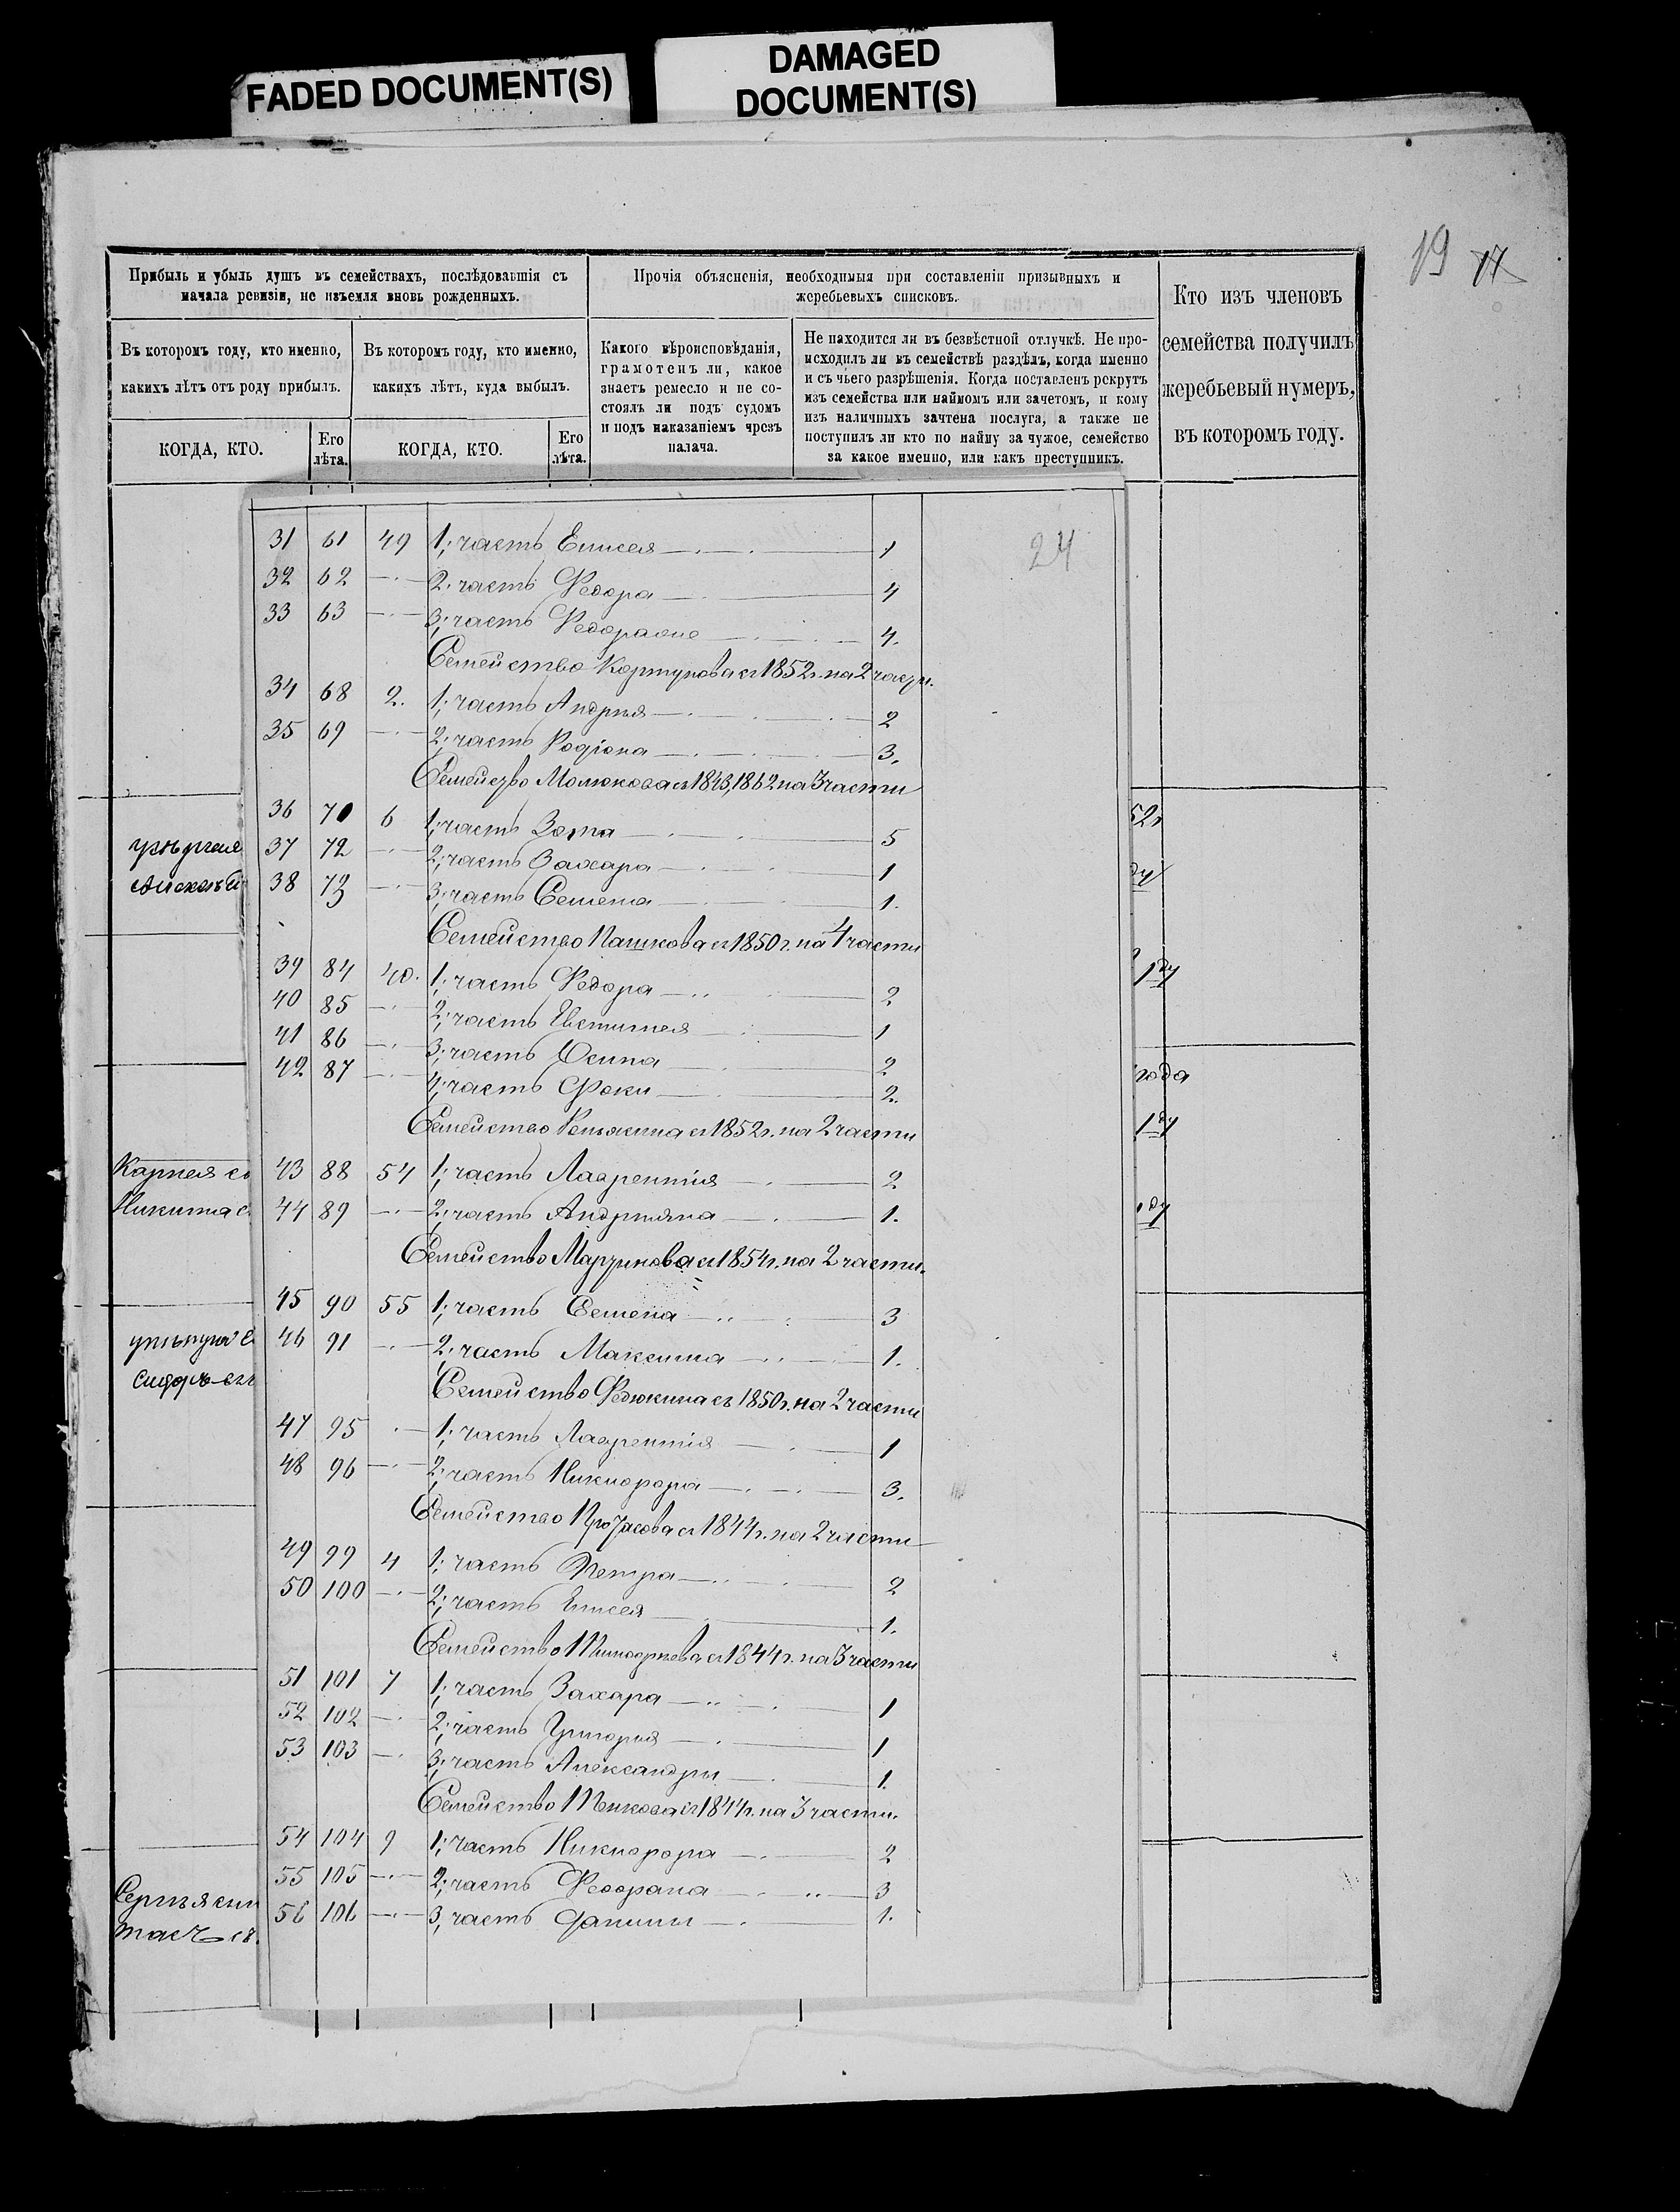 FADED DOCUMENT(S)
DAMAGED
DOCUMENT(S)
19 17
Прибыль и убыль душъ въ семействахъ, послѣдовавшія съ
начала ревизіи, не изъемля вновь рожденныхъ.
Прочія объясненія, необходимыя при составленіи призывныхъ и
жеребьевыхъ списковъ.
Кто изъ членовъ
семейства получилъ
жеребьевый нумеръ,
въ которомъ году.
Въ которомъ году, кто именно,
какихъ лѣтъ отъ роду прибылъ.
Въ которомъ году, кто именно,
какихъ лѣтъ, куда выбылъ.
Какого вѣроисповѣданія,
грамотенъ ли, какое
знаетъ ремесло и не со-
стоялъ ли подъ судомъ
и подъ наказаніемъ чрезъ
палача.
Не находится ли въ безвѣстной отлучкѣ. Не про-
исходилъ ли въ семействѣ раздѣлъ, когда именно
и съ чьего разрѣшенія. Когда поставленъ рекрутъ
изъ семейства или наймомъ или зачетомъ, и кому
изъ наличныхъ зачтена послуга, а также не
поступилъ ли кто по найму за чужое, семейство
за какое именно, или какъ преступникъ.
КОГДА, КТО.
Его
лѣта.
КОГДА, КТО.
Его
лѣта.
24
31 61 49 1; часть Елисея 1
32 62 2; часть Федора 4
33 63 3; часть 4.
Семейство Кортунова съ 1852г. на 2 части.
34 68 2. 1; часть Андрея 2
35 69 2; часть Родіона 3.
Семейство Молюкова съ 1843, 1862 на 3 части
36 70 6 1; часть Зота 5
37 72 2; часть Захара 1
38 73 3; часть Семена 1.
Семейство Пашкова съ 1850г. на 4 части
39 84 40. 1; часть Федора 2
40 85 2; часть 1
41 86 3; часть Осипа 2
42 87 4; часть Фоки 2.
года
Семейство съ 1852г. на 2 части
Карпея
43 88 54 1; часть Лаврентія 2
Никита
44 89 2; часть Андрияна 1.
Семейство съ 1854г. на 2 части.
45 90 55 1; часть Семена 3
46 91 2. часть Максима 1.
Семейство Федюкина съ 1850г. на 2 части
47 95 1; часть Лаврентія 1
48 96 2; часть Никифора 3.
Семейство Протасова съ 1844г. на 2 части
49 99 4 1; часть Петра 2
50 100 2; часть Елисея 1.
Семейство съ 1844г. на 3 части
51 101 7 1; часть Захара 1
52 102 2; часть Григорія 1
53 103 3; часть Александры 1.
Семейство съ 1844г. на 3 части.
54 104 9 1; часть Никифора 2
55 105 2; часть 3
56 106 3, часть Данилы 1.